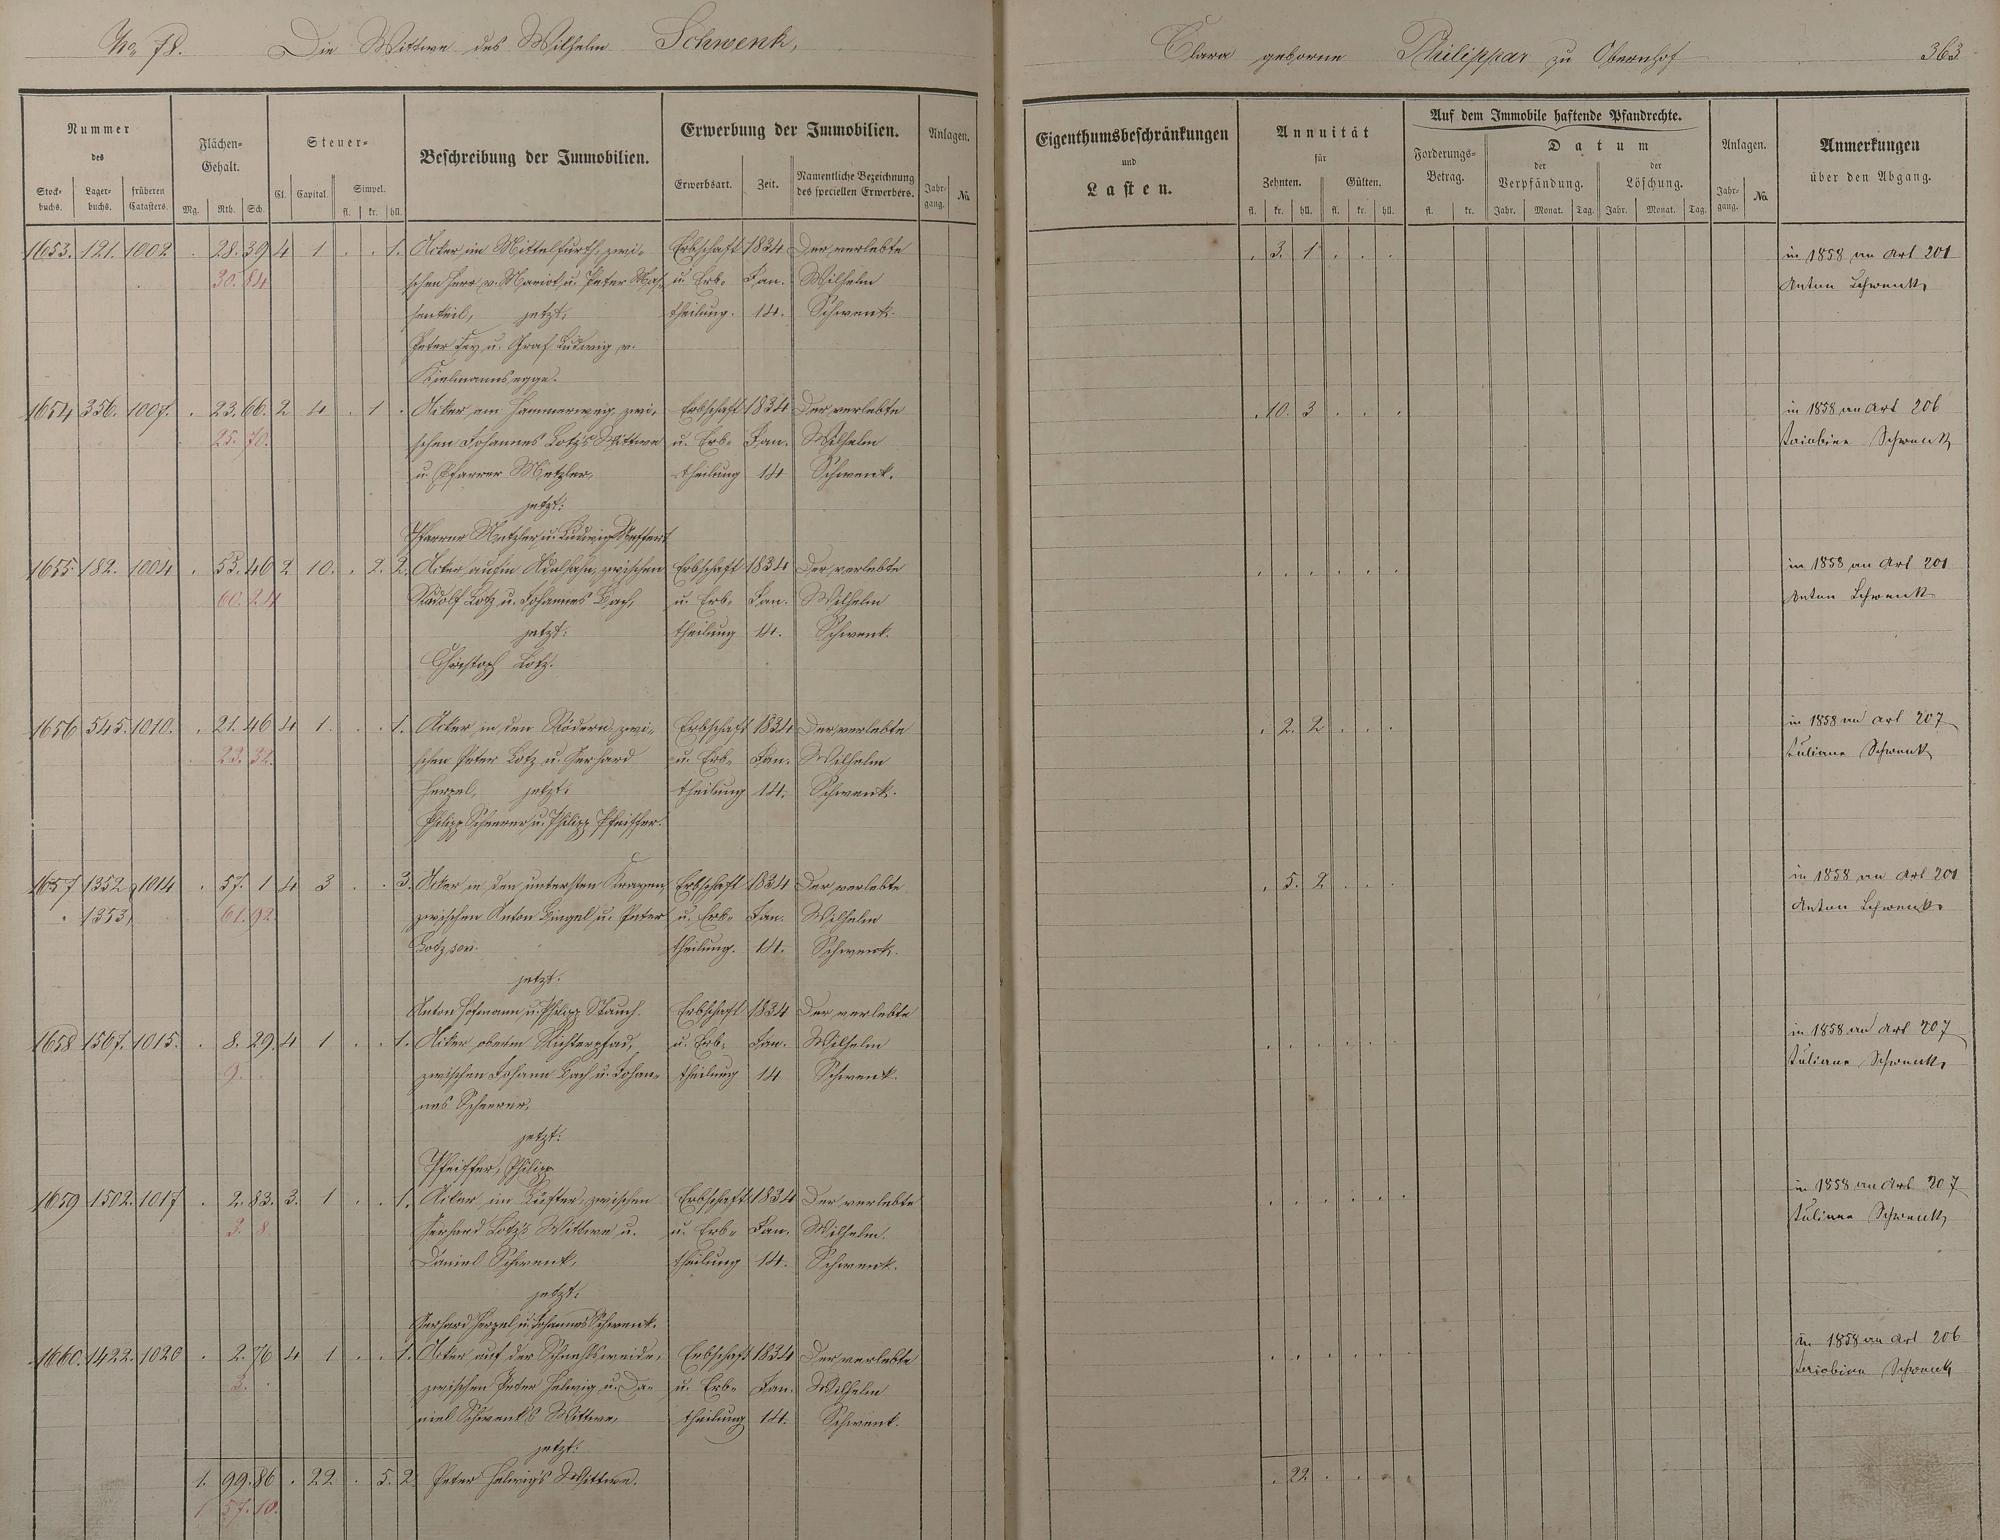 No 78. Die Wittwe des Wilhelm Schwenk,
Clara geborne Philippar zu Obernhof 363
Nummer
des
Stock-
buchs.
Lager-
buchs.
früheren
Catasters.
Flächen-
Gehalt.
Mg. Rth. Sch.
Steuer-
Cl. Capital. Simpel.
fl. kr. hll.
Beschreibung der Immobilien.
Erwerbung der Immobilien.
Erwerbsart. Zeit. Namentliche Bezeichnung
des speciellen Erwerbers.
Anlagen.
Jahr-
gang. No.
Eigenthumsbeschränkungen
und
Lasten.
Annuität
für
Zehnten. Gülten.
fl. kr. hll. fl. kr. hll.
Auf dem Immobile haftende Pfandrechte.
Forderungs-
Betrag.
fl. kr.
Datum
der
Verpfändung.
der
Löschung.
Jahr. Monat. Tag. Jahr. Monat. Tag.
Anlagen.
Jahr-
gang. No.
Anmerkungen
über den Abgang.
1653. 121. 1002 . 28. 39 4 1 . . 1. Acker im Mittelfurth, zwi- Erbschaft 1834 Der verlebte . 3. 1 . . . in 1858 an Art 201
30. 84 schen Herr v. Mariot u. Peter Mas- u. Erb- Jan. Wilhelm Anton Schwenk
senkeil, jetzt: theilung. 14. Schwenk.
Peter Fey u. Graf Ludwig v.
Kielmannsegge.
1654 356. 1007. . 23. 66. 2 4 . 1 . Acker am Hammerweg, zwi- Erbschaft 1834 Der verlebte . 10. 3 . . . in 1858 an Art 206
25. 70. schen Johannes Lotz's Wittwe u. Erb- Jan. Wilhelm Schwenk
u. Pfarrer Metzler, theilung 14 Schwenk.
jetzt:
Pfarrer Metzler u. Ludwig
1655 182. 1004 . 55. 46 2 10. . 2. 2. Acker zwischen Erbschaft 1834 Der verlebte . . . . . . in 1858 an Art 201
60. 24 Rudolf Lotz u. Johannes Bach, u. Erb- Jan. Wilhelm Anton Schwenk
jetzt: theilung 14. Schwenk.
Christoph Lotz.
1656 545. 1010. . 21. 46 4 1. . . 1. Acker in den Rödern, zwi- Erbschaft 1834 Der verlebte . 2. 2 . . . in 1858 an Art 207
23. 32. schen Peter Lotz u. Gerhard u. Erb- Jan. Wilhelm Juliane Schwenk
Herzel, jetzt: theilung 14. Schwenk.
Philipp Scheerer u. Philipp Pfeiffer.
1657 1352 1014 . 57. 1 4 3 . . 3. Acker in den untersten zwischen Erbschaft 1834 Der verlebte . 5. 2 . . . in 1858 an Art 201
1353, 61. 92 zwischen Anton u. Peter u. Erb- Jan. Wilhelm Anton Schwenk
Lotz sen. theilung. 14. Schwenk.
jetzt.
Anton Hofmann u. Philipp Stauch. Erbschaft 1834 Der verlebte
1658 1567. 1015. . 8. 29. 4 1 . . 1. Acker oberm u. Erb- Jan. Wilhelm . . . . . . in 1858 an Art 207
9. . zwischen Johann Bach u. Johan- theilung 14 Schwenk. Juliane Schwenk
nes Scheerer,
jetzt:
Pfeiffer, Philipp
1659 1502. 1017 . 2. 83. 3. 1 . . 1. Acker im zwischen Erbschaft 1834 Der verlebte . . . . . . in 1858 an Art 207
3. 8. Gerhard Lotz's Wittwe u. u. Erb- Jan. Wilhelm. Juliane Schwenk
Daniel Schwenk, theilung 14. Schwenk.
jetzt:
Gerhard Herzel u. Johannes Schwenk.
1660. 1422. 1020 . 2. 76 4 1 . . 1. Acker auf der zwischen Erbschaft 1834 Der verlebte . . . . . . in 1858 an Art 206
3. . zwischen Peter Helwig u. Da- u. Erb- Jan. Wilhelm Schwenk
niel Schwenk's Wittwe, theilung 14. Schwenk.
jetzt:
1. 99. 86 . 22 . 5. 2 Peter Helwig's Wittwe. . 22 . . . .
1 57. 10.